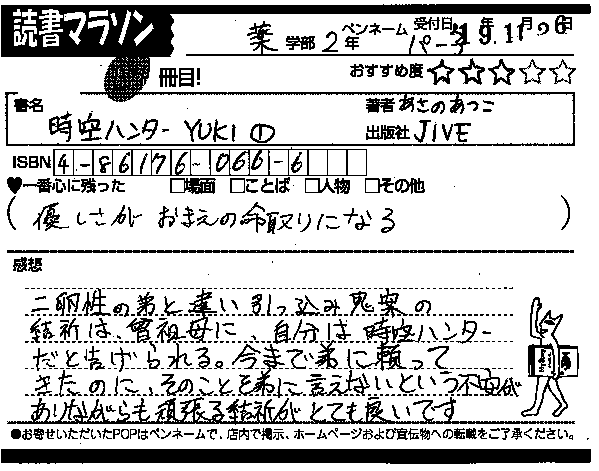 読書マラソン
薬 学部 2年 ペンネーム パーク 受付日 '19年11月06日
冊目!
おすすめ度 ☆☆☆☆☆
書名 時空ハンターYUKI ①
著者 あさのあつこ
出版社 JIVE
ISBN 4-86176-066-6
♥一番心に残った □場面 □ことば □人物 □その他
(優しさが おまえの命取りになる)
感想
二卵性の弟と違い引っ込み思案の
結祈は、曽祖母に、自分は時空ハンター
だと告げられる。今まで弟に頼って
きたのに、そのことを弟に言えないという不安が
ありながらも頑張る結祈がとても良いです
●お寄せいただいたPOPはペンネームで、店内で掲示、ホームページおよび宣伝物への転載をご了承ください。